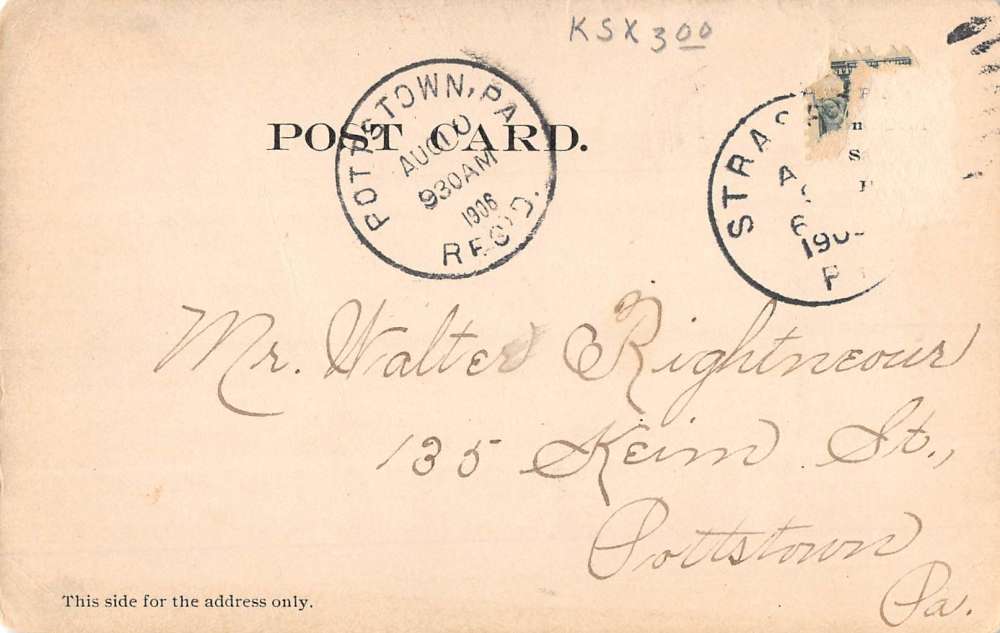 KSX 3.00
POST CARD.
POTTSTOWN, PA.
AUG 10
930AM
1906
REC'D.
STRAS
A
6
190
P
Mr. Walter Rightneour
135 Keim St.,
Pottstown
Pa.
This side for the address only.